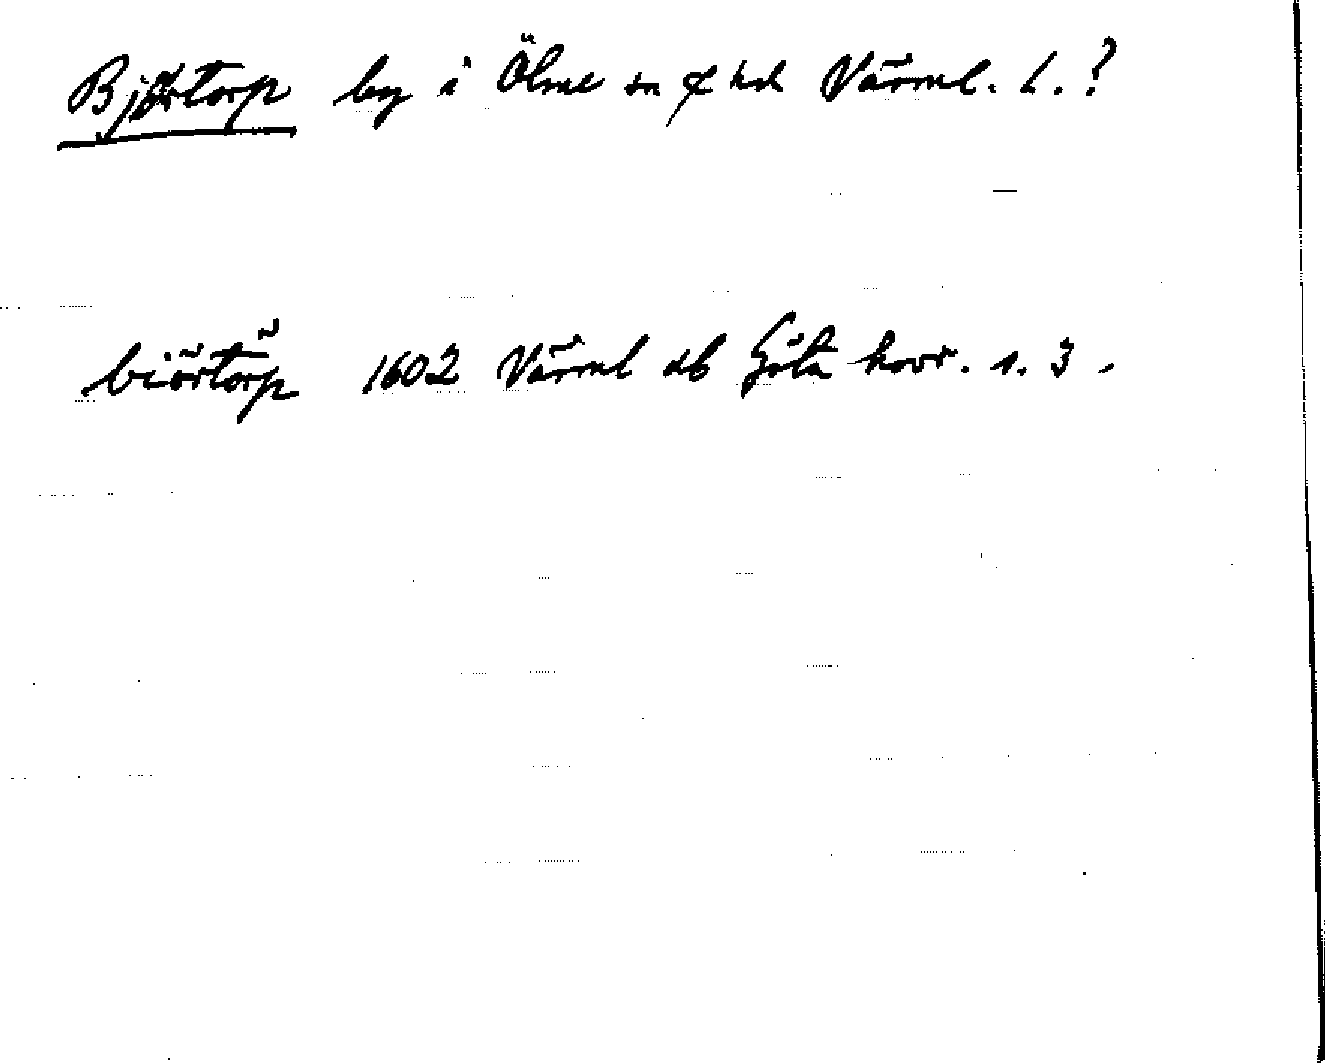 Björtorp by i Ölme sn & hd Värml. l.?
biörtörp 1602 Värml db Göta hovr. s. 3.